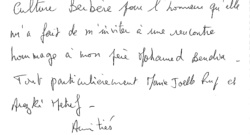 Culture Berbère pour l'honneur qu'elle
m'a fait de m'inviter à une rencontre
hommage à mon père Mohamed Bendine.
Tout particulièrement Marie Joelle Ruf et
Arezki Metref.
Amitiés